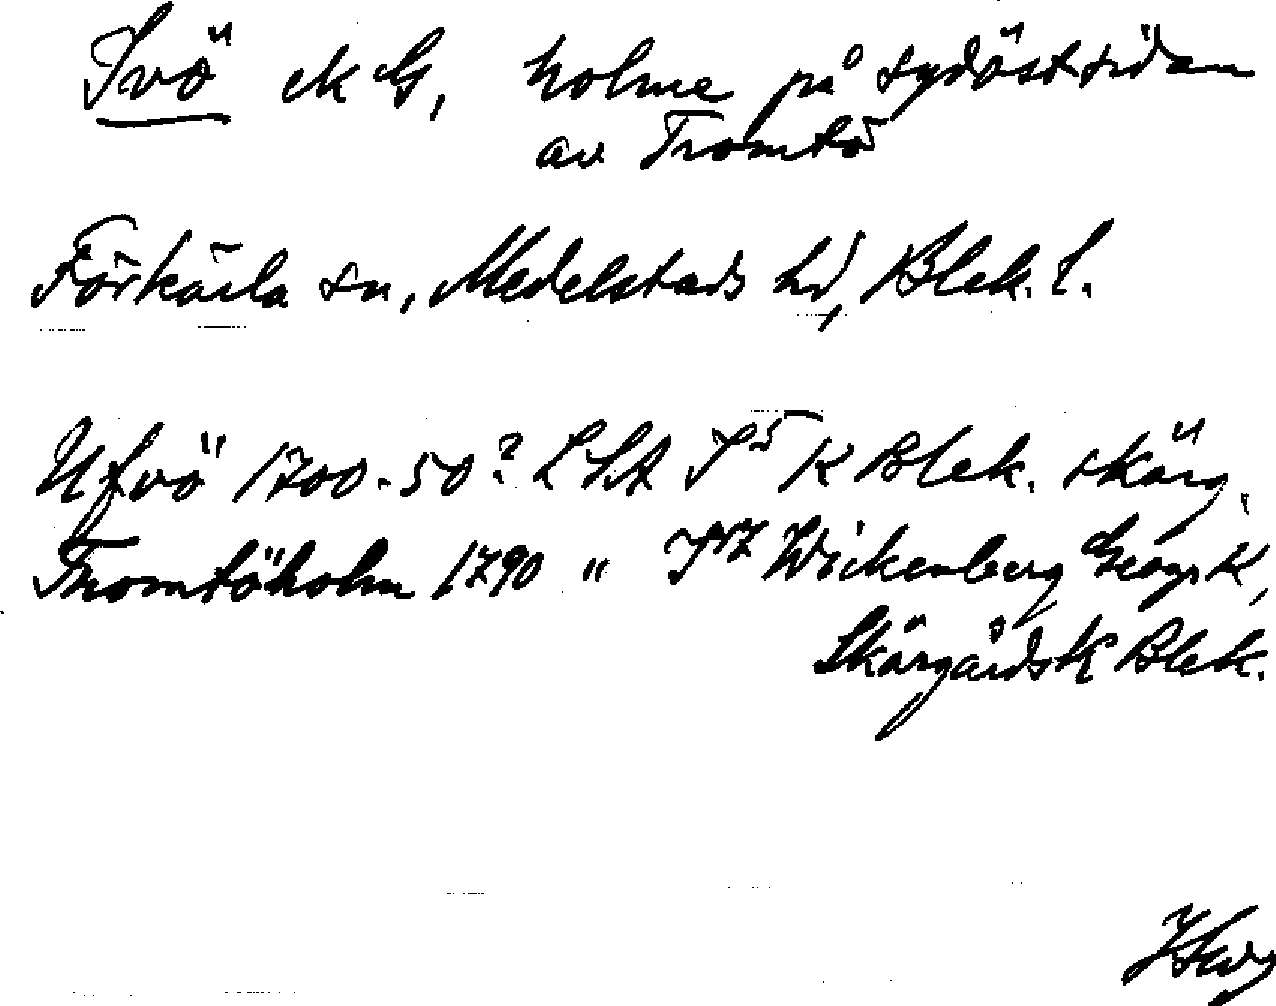 Ivö ek G, holme på sydöstsidan
av Tromtö
Förkärla sn, Medelstads hd, Blek. l.
Ufvö 1700-50? LSA I5 K Blek. skärg.
Tromtöholm 1790 " I17 Wickenberg Geogr K,
SkärgårdsK Blek.